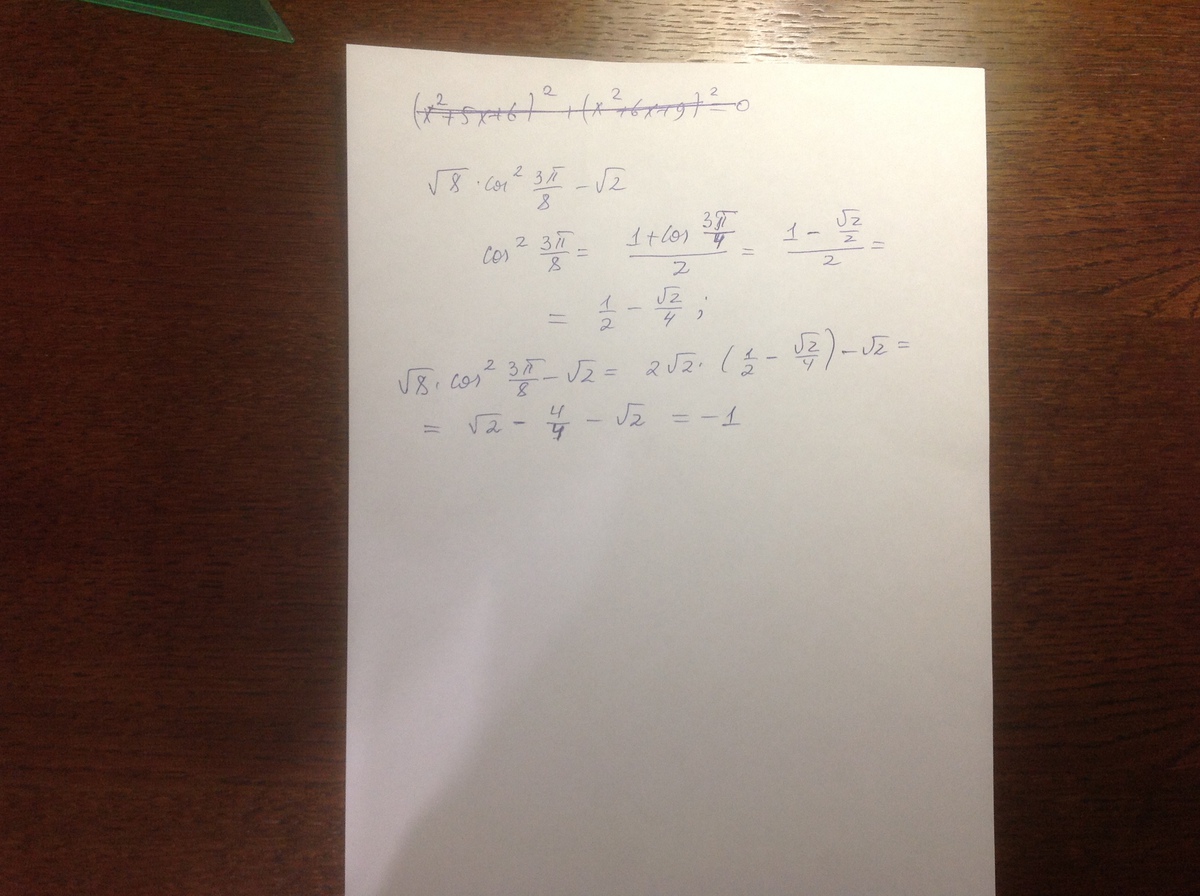 (x²+5x+6)² + (x²+6x+9)² = 0
√8 · cos² 3π/8 − √2
cos² 3π/8 = (1+cos 3π/4)/2 = (1 − √2/2)/2 =
= 1/2 − √2/4 ;
√8 · cos² 3π/8 − √2 = 2√2 · (1/2 − √2/4) − √2 =
= √2 − 4/4 − √2 = −1